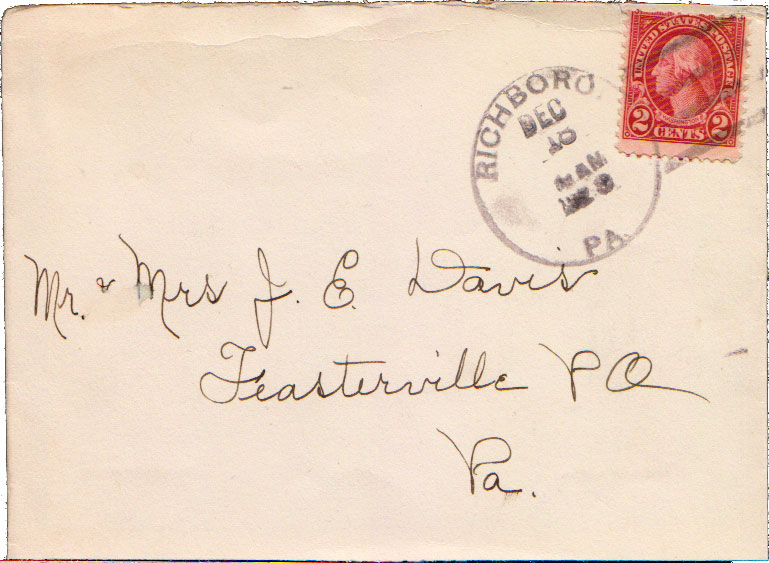 UNITED STATES POSTAGE
2 CENTS 2
RICHBORO
DEC
AM
PA.
Mr. & Mrs J. E. Davis
Feasterville P O
Pa.